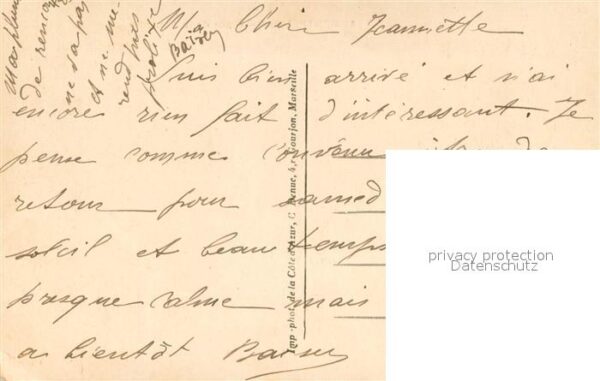 Ma Chère Jeannette
Suis bien arrivé et n'ai
encore rien fait d'intéressant. Je
pense comme convenu
retour pour samed
soleil et beau temps
presque calme mais
a bientôt Baiser
Ma plume
de
ne
et ne me
rend pas
prolixe
Baiser
Imp.-phot. de la Côte d'Azur, C. Benne, 4, r. Mourjon, Marseille
privacy protection
Datenschutz